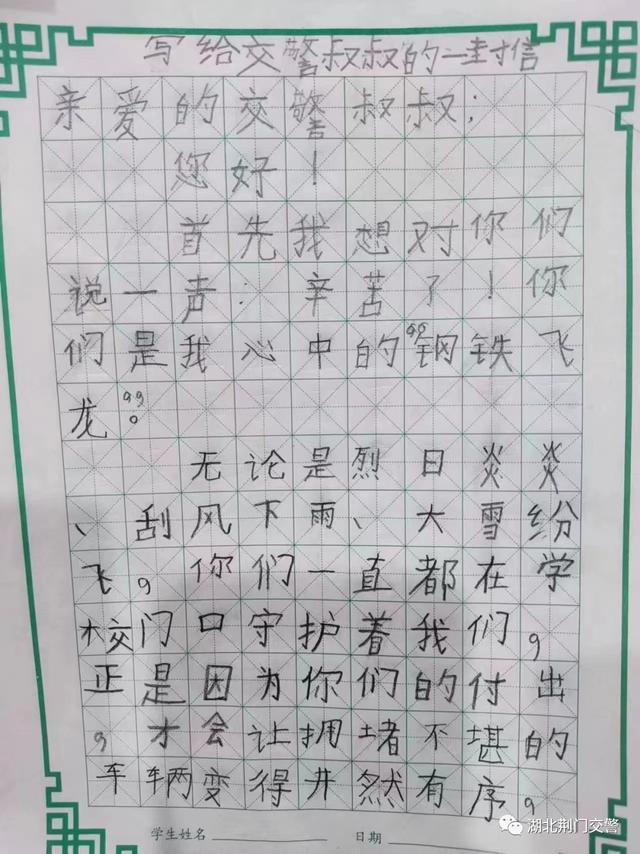 写给交警叔叔的一封信
亲爱的交警叔叔:
您好!
首先我想对你们
说一声:辛苦了!你
们是我心中的“钢铁飞
龙”。
无论是烈日炎炎
、刮风下雨、大雪纷
飞,你们一直都在学
校门口守护着我们,
正是因为你们的付出
,才会让拥堵不堪的
车辆变得井然有序,
学生姓名 日期
湖北荆门交警